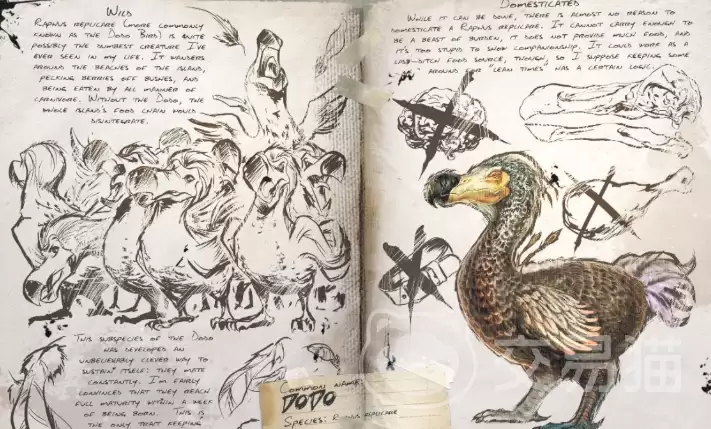 Wild
Raphus replicare (more commonly
known as the Dodo Bird) is quite
possibly the dumbest creature I've
ever seen in my life. It wanders
around the beaches of the island,
pecking berries off bushes, and
being eaten by all manner of
carnivore. Without the Dodo, the
whole island's food chain would
disintegrate.
This subspecies of the Dodo
has developed an
unbelievably clever way to
sustain itself: they mate
constantly. I'm fairly
convinced that they reach
full maturity within a week
of being born. This is
the only trait keeping
Domesticated
While it can be done, there is almost no reason to
domesticate a Raphus replicare. It cannot carry enough to
be a beast of burden, it does not provide much food, and
it's too stupid to show companionship. It could work as a
last-ditch food source, though, so I suppose keeping some
around for lean times has a certain logic.
Common Name:
DODO
Species: Raphus replicare
交易猫